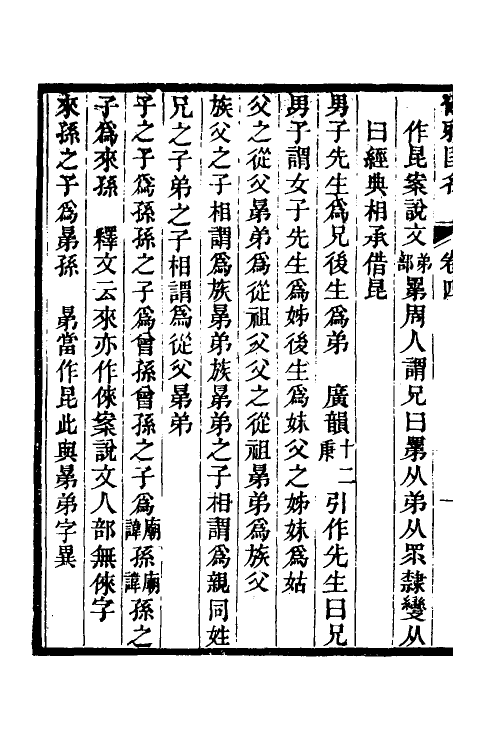 卷四
作昆案說文弟部罤周人謂兄曰罤从弟从眔隸變从
曰經典相承借昆
男子先生爲兄後生爲弟　廣韻十二庚引作先生曰兄
男子謂女子先生爲姊後生爲妹父之姊妹爲姑
父之從父晜弟爲從祖父父之從祖晜弟爲族父
族父之子相謂爲族晜弟族晜弟之子相謂爲親同姓
兄之子弟之子相謂爲從父晜弟
子之子爲孫孫之子爲曾孫曾孫之子爲廟諱孫廟諱孫之
子爲來孫　釋文云來亦作倈案說文人部無倈字
來孫之子爲晜孫　晜當作昆此與晜弟字異